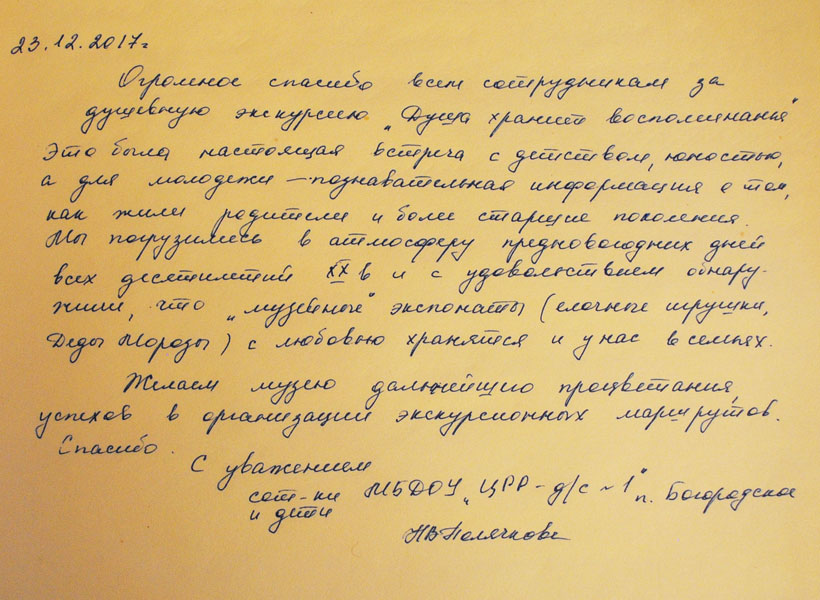 23.12.2017г
Огромное спасибо всем сотрудникам за
душевную экскурсию „Душа хранит воспоминания"
Это была настоящая встреча с детством, юностью,
а для молодежи — познавательная информация о том,
как жили родители и более старшие поколения.
Мы погрузились в атмосферу предновогодних дней
всех десятилетий XX в и с удовольствием обнару-
жили, что „музейные" экспонаты (елочные игрушки,
Деды Морозы) с любовью хранятся и у нас в семьях.
Желаем музею дальнейшего процветания,
успехов в организации экскурсионных маршрутов.
Спасибо.
С уважением
сот-ки МБДОУ „ЦРР - д/с ~1" п. Богородское
и дети